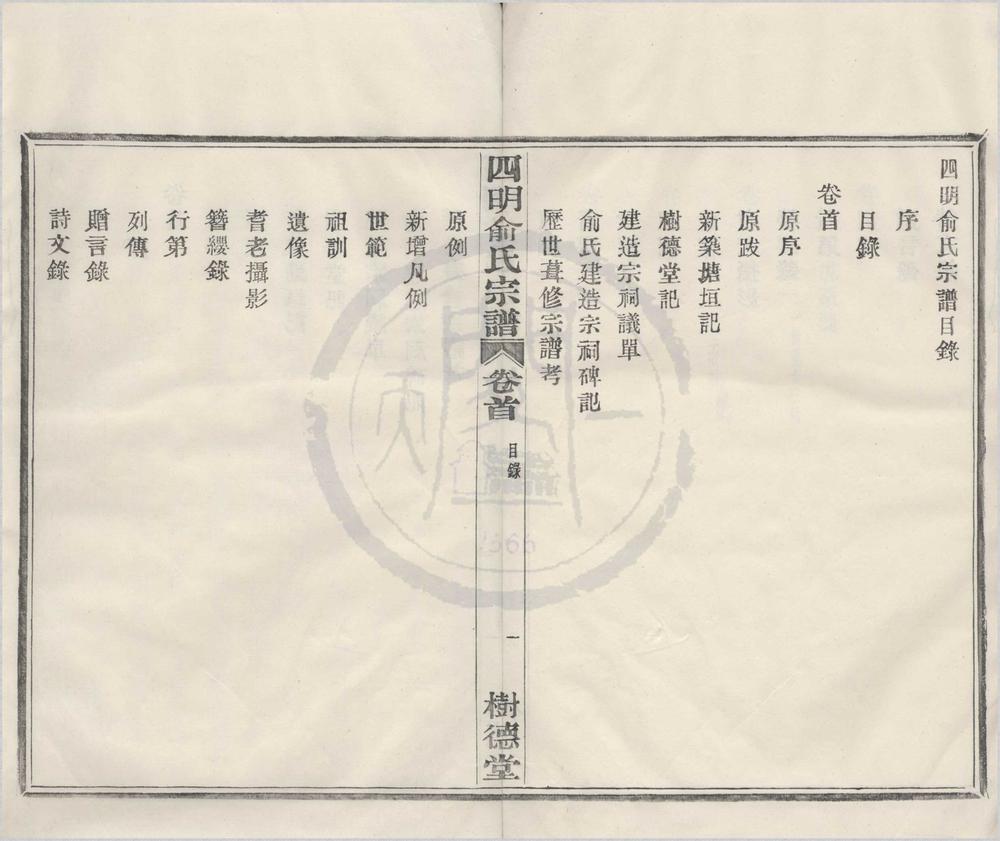 四明俞氏宗譜目錄
序
目錄
卷首
原序
原跋
新築墻垣記
樹德堂記
建造宗祠議單
俞氏建造宗祠碑記
歷世葺修宗譜考
四明俞氏宗譜
卷首
目錄
一
樹德堂
原例
新增凡例
世範
祖訓
遺像
耆老攝影
簪纓錄
行第
列傳
贈言錄
詩文錄